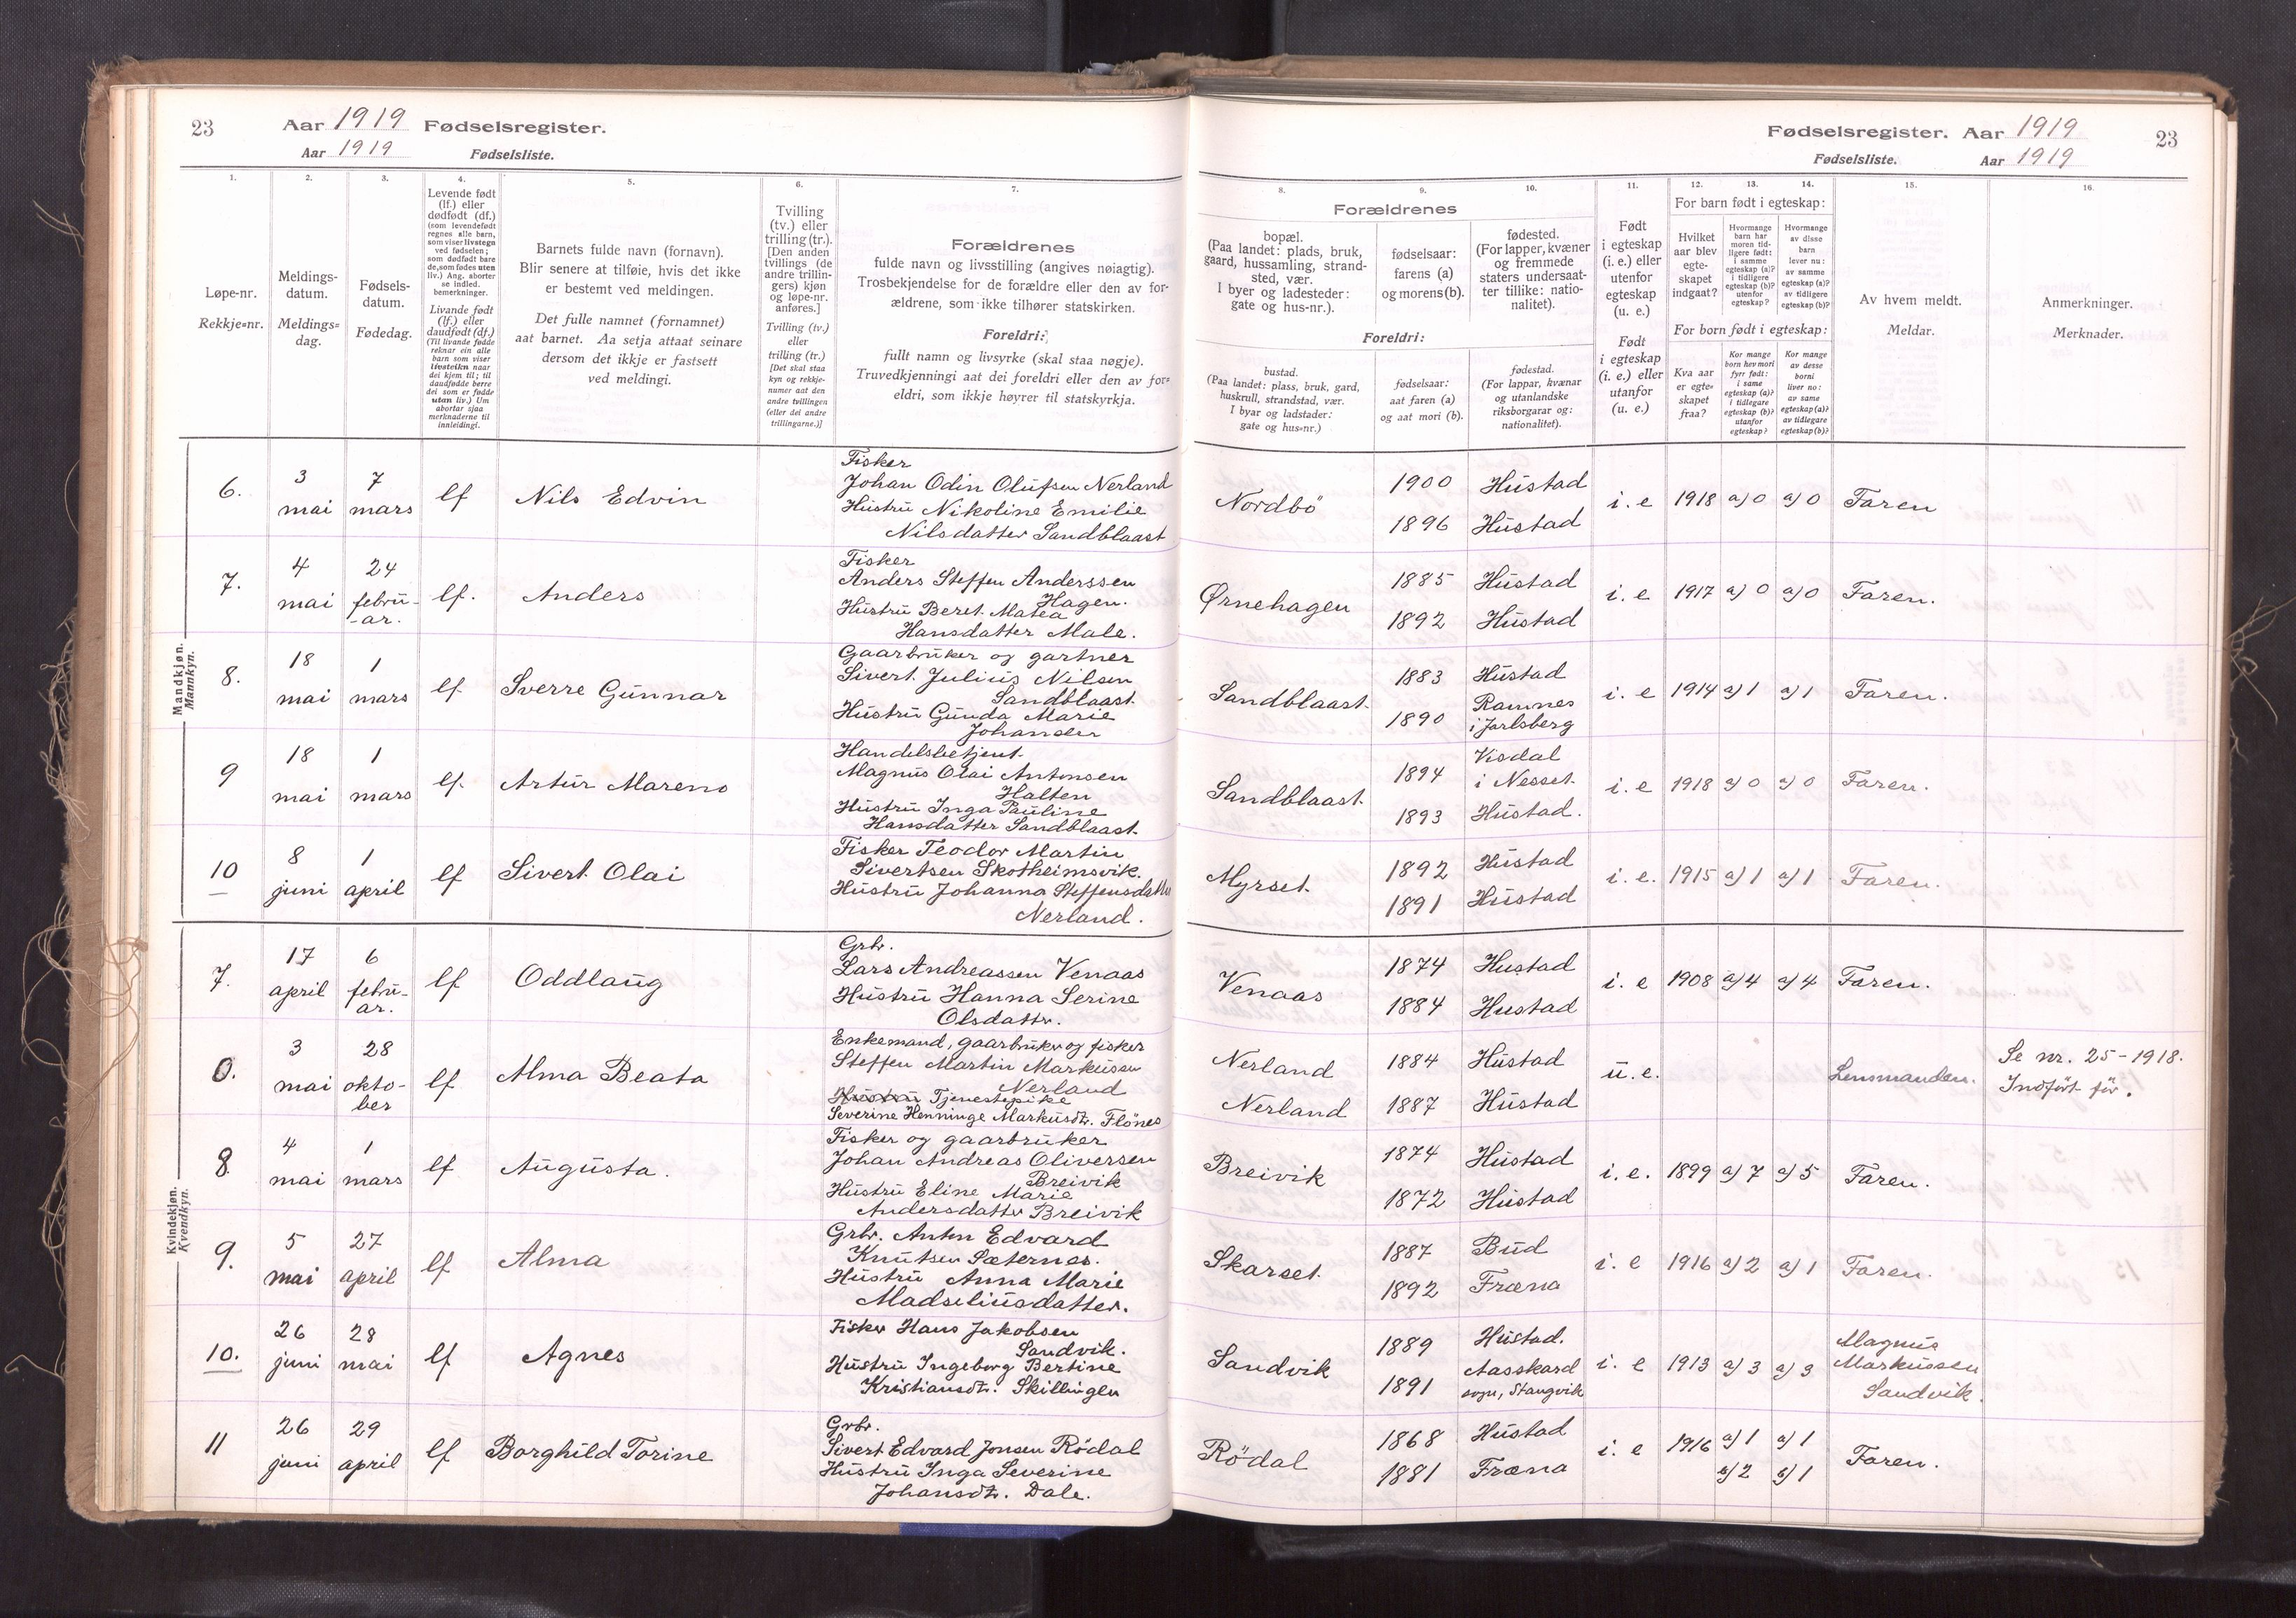 23
Aar 1919 Fødselsregister.
Aar 1919 Fødselsliste.
1.
2.
3.
4.
5.
6.
7.
Løpe-nr.
Rekkje=nr.
Meldings-
datum.
Meldings=
dag.
Fødsels-
datum.
Fødedag.
Levende født
(lf.) eller
dødfødt (df.)
(som levendefødt
regnes alle barn,
som viser livstegn
ved fødselen;
som dødfødt bare
de, som fødes uten
liv.) Ang. aborter
se indled.
bemerkninger.
Livande født
(lf.) eller
daudfødt (df.)
(Til livande fødde
reknar ein alle
barn som viser
livsteikn naar
dei kjem til; til
daudfødde berre
dei som er fødde
utan liv.) Um
abortar sjaa
merknaderne til
innleidingi.
Barnets fulde navn (fornavn).
Blir senere at tilføie, hvis det ikke
er bestemt ved meldingen.
Det fulle namnet (fornamnet)
aat barnet. Aa setja attaat seinare
dersom det ikkje er fastsett
ved meldingi.
Tvilling
(tv.) eller
trilling (tr.).
[Den anden
tvillings (de
andre trillin-
gers) kjøn
og løpe-nr.
anføres.]
Tvilling (tv.)
eller
trilling (tr.)
[Det skal staa
kyn og rekkje-
numer aat den
andre tvillingen
(eller dei andre
trillingarne.)]
Forældrenes
fulde navn og livsstilling (angives nøiagtig).
Trosbekjendelse for de forældre eller den av for-
ældrene, som ikke tilhører statskirken.
Foreldri:
fullt namn og livsyrke (skal staa nøgje).
Truvedkjenningi aat dei foreldri eller den av for=
eldri, som ikkje høyrer til statskyrkja.
Mandkjøn.
Mannkyn.
6.
3
mai
7
mars
lf
Nils Edvin
Fisker
Johan Odin Olufsen Nerland
Hustru Nikoline Emilie
Nilsdatter Sandblaast
7.
4
mai
24
febru-
-ar.
lf.
Anders
Fisker
Anders Steffen Anderssen
Hagen.
Hustru Beret Matea
Hansdatter Male.
8.
18
mai
1
mars
lf
Sverre Gunnar
Gaarbruker og gartner
Sivert Julius Nilsen
Sandblaast
Hustru Gunda Marie
9
18
mai
1
mars
lf.
Artur Mareno
Handelsbetjent
Magnus Olai Antonsen
Halten
Hustru Inga Pauline
Hansdatter Sandblaast.
10
8
juni
1
april
lf
Sivert Olai
Fisker Teodor Martin
Sivertsen Skotheimsvik.
Hustru Johanna Steffensdatter
Nerland.
Kvindekjøn.
Kvendkyn.
7.
17
april
6
febru-
ar.
lf
Oddlaug
Grbr.
Lars Andreassen Venaas
Hustru Hanna Serine
Olsdattr.
0.
3
mai
28
okto-
ber
lf
Alma Beata
Enkemand, gaarbruker og fisker
Steffen Martin Markussen
Nerland
Hustru Tjenestepike
Severine Henninge Markusdtr. Flönes
8
4
mai
1
mars
lf
Augusta.
Fisker og gaarbruker
Johan Andreas Oliversen
Breivik
Hustru Eline Marie
Andersdatter Breivik
9.
5
mai
27
april
lf
Alma
Grbr. Anton Edvard
Knutsen Sæternes.
Hustru Anna Marie
Madseliusdatter.
10.
26
juni
28
mai
lf
Agnes
Fisker Hans Jakobsen
Sandvik.
Hustru Ingeborg Bertine
Kristiansdtr. Skillingen
11
26
juni
29
april
lf
Borghild Torine
Grbr.
Sivert Edvard Jonsen Rödal
Hustru Inga Severine
Johansdtr. Dale.
Fødselsregister. Aar 1919
23
Fødselsliste. Aar 1919
8.
9.
10.
11.
12.
13.
14.
15.
16.
Forældrenes
bopæl.
(Paa landet: plads, bruk,
gaard, hussamling, strand-
sted, vær.
I byer og ladesteder:
gate og hus-nr.).
fødselsaar:
farens (a)
og morens (b).
fødested.
(For lapper, kvæner
og fremmede
staters undersaat-
ter tillike: natio-
nalitet).
Foreldri:
bustad.
(Paa landet: plass, bruk, gard,
huskrull, strandstad, vær.
I byar og ladstader:
gate og hus=nr.)
fødselsaar:
aat faren (a)
og aat mori (b).
fødestad.
(For lappar, kvænar
og utanlandske
riksborgarar og:
nationalitet).
Født
i egteskap
(i. e.) eller
utenfor
egteskap
(u. e.)
Født
i egteskap
(i. e.) eller
utanfor
(u. e.)
For barn født i egteskap:
Hvilket
aar blev
egte-
skapet
indgaat?
Hvormange
barn har
moren tid-
ligere født:
i samme
egteskap (a)?
i tidligere
egteskap (b)?
utenfor
egteskap?
Hvormange
av disse
barn
lever nu:
av samme
egteskap (a)?
av tidligere
egteskap (b)?
For born født i egteskap:
Kva aar
er egte=
skapet
fraa?
Kor mange
born hev mori
fyrr født:
i same
egteskap (a)?
i tidlegare
egteskap (b)?
utanfor
egteskap?
Kor mange
av desse
borni
liver no:
av same
egteskap (a)?
av tidlegare
egteskap (b)?
Av hvem meldt.
Meldar.
Anmerkninger.
Merknader.
Nordbö
1900
1896
Hustad
Hustad
i. e
1918
a) 0
a) 0
Faren
Ørnehagen
1885
1892
Hustad
Hustad
i. e
1917
a) 0
a) 0
Faren.
Sandblaast
1883
1890
Hustad
Ramnes
i Jarlsberg
i. e
1914
a) 1
a) 1
Faren.
Sandblaast.
1894
1893
Visdal
i Nesset
Hustad.
i. e
1918
a) 0
a) 0
Faren.
Myrset.
1892
1891
Hustad
Hustad
i. e.
1915
a) 1
a) 1
Faren.
Venaas
1874
1884
Hustad
Hustad
i. e
1908
a) 4
a) 4
Faren.
Nerland
Nerland
1884
1887
Hustad
Hustad
u. e.
Lensmanden.
Se nr. 25-1918.
Indført før.
Breivik
1874
1872
Hustad
Hustad
i. e.
1899
a) 7
a) 5
Faren.
Skarset.
1887
1892
Bud
Fræna
i. e
1916
a) 2
a) 1
Faren.
Sandvik
1889
1891
Hustad.
Aasskard
sogn, Stangvik
i. e
1913
a) 3
a) 3
Magnus
Markussen
Sandvik.
Rödal
1868
1881
Hustad
Fræna
i. e
1916
a) 1
b) 2
a) 1
b) 1
Faren.